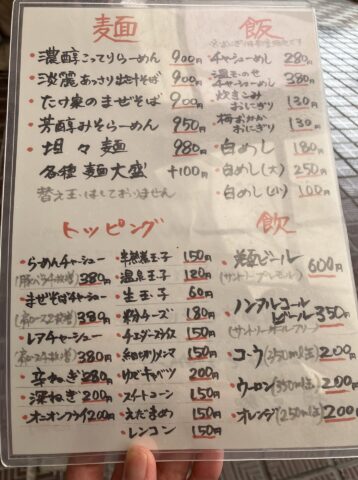 麺
・濃醇こってりらーめん 900円
・淡麗あっさり出汁そば 900円
・たけ家のまぜそば 900円
・芳醇みそらーめん 950円
・坦々麺 980円
各種 麺大盛 +100円
替え玉はしておりません
飯
チャーシューめし 280円
温玉のせチャーシューめし 380円
炊きこみおにぎり 130円
梅おかかおにぎり 130円
・白めし 180円
・白めし(大) 250円
・白めし(小) 100円
トッピング
・らーめんチャーシュー
(豚バラ4枚増) 380円
・まぜそばチャーシュー
(肩ロース2枚増) 380円
・レアチャーシュー
380円
・辛ねぎ 280円
・深ねぎ 200円
・オニオンフライ 200円
・半熟煮玉子 150円
・温泉玉子 120円
・生玉子 60円
・粉チーズ 180円
・チェダースライス 150円
・細切りメンマ 150円
・ゆでキャベツ 200円
・スイートコーン 150円
・えだまめ 150円
・レンコン 150円
飲
・瓶ビール 600円
(サントリープレモル)
・ノンアルコール
ビール 350円
(サントリーオールフリー)
・コーラ(350ml缶) 200円
・ウーロン(350ml缶) 200円
・オレンジ(250ml缶) 200円